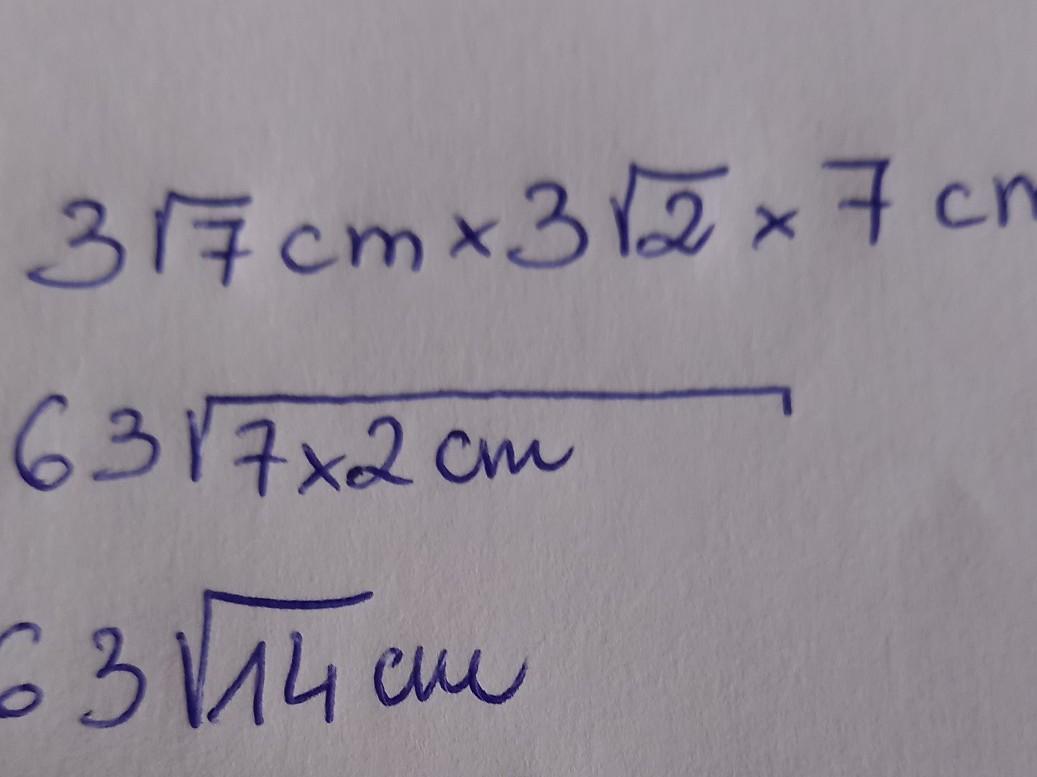 3√7 cm × 3√2 × 7 cm
63√7×2 cm
63√14 cm